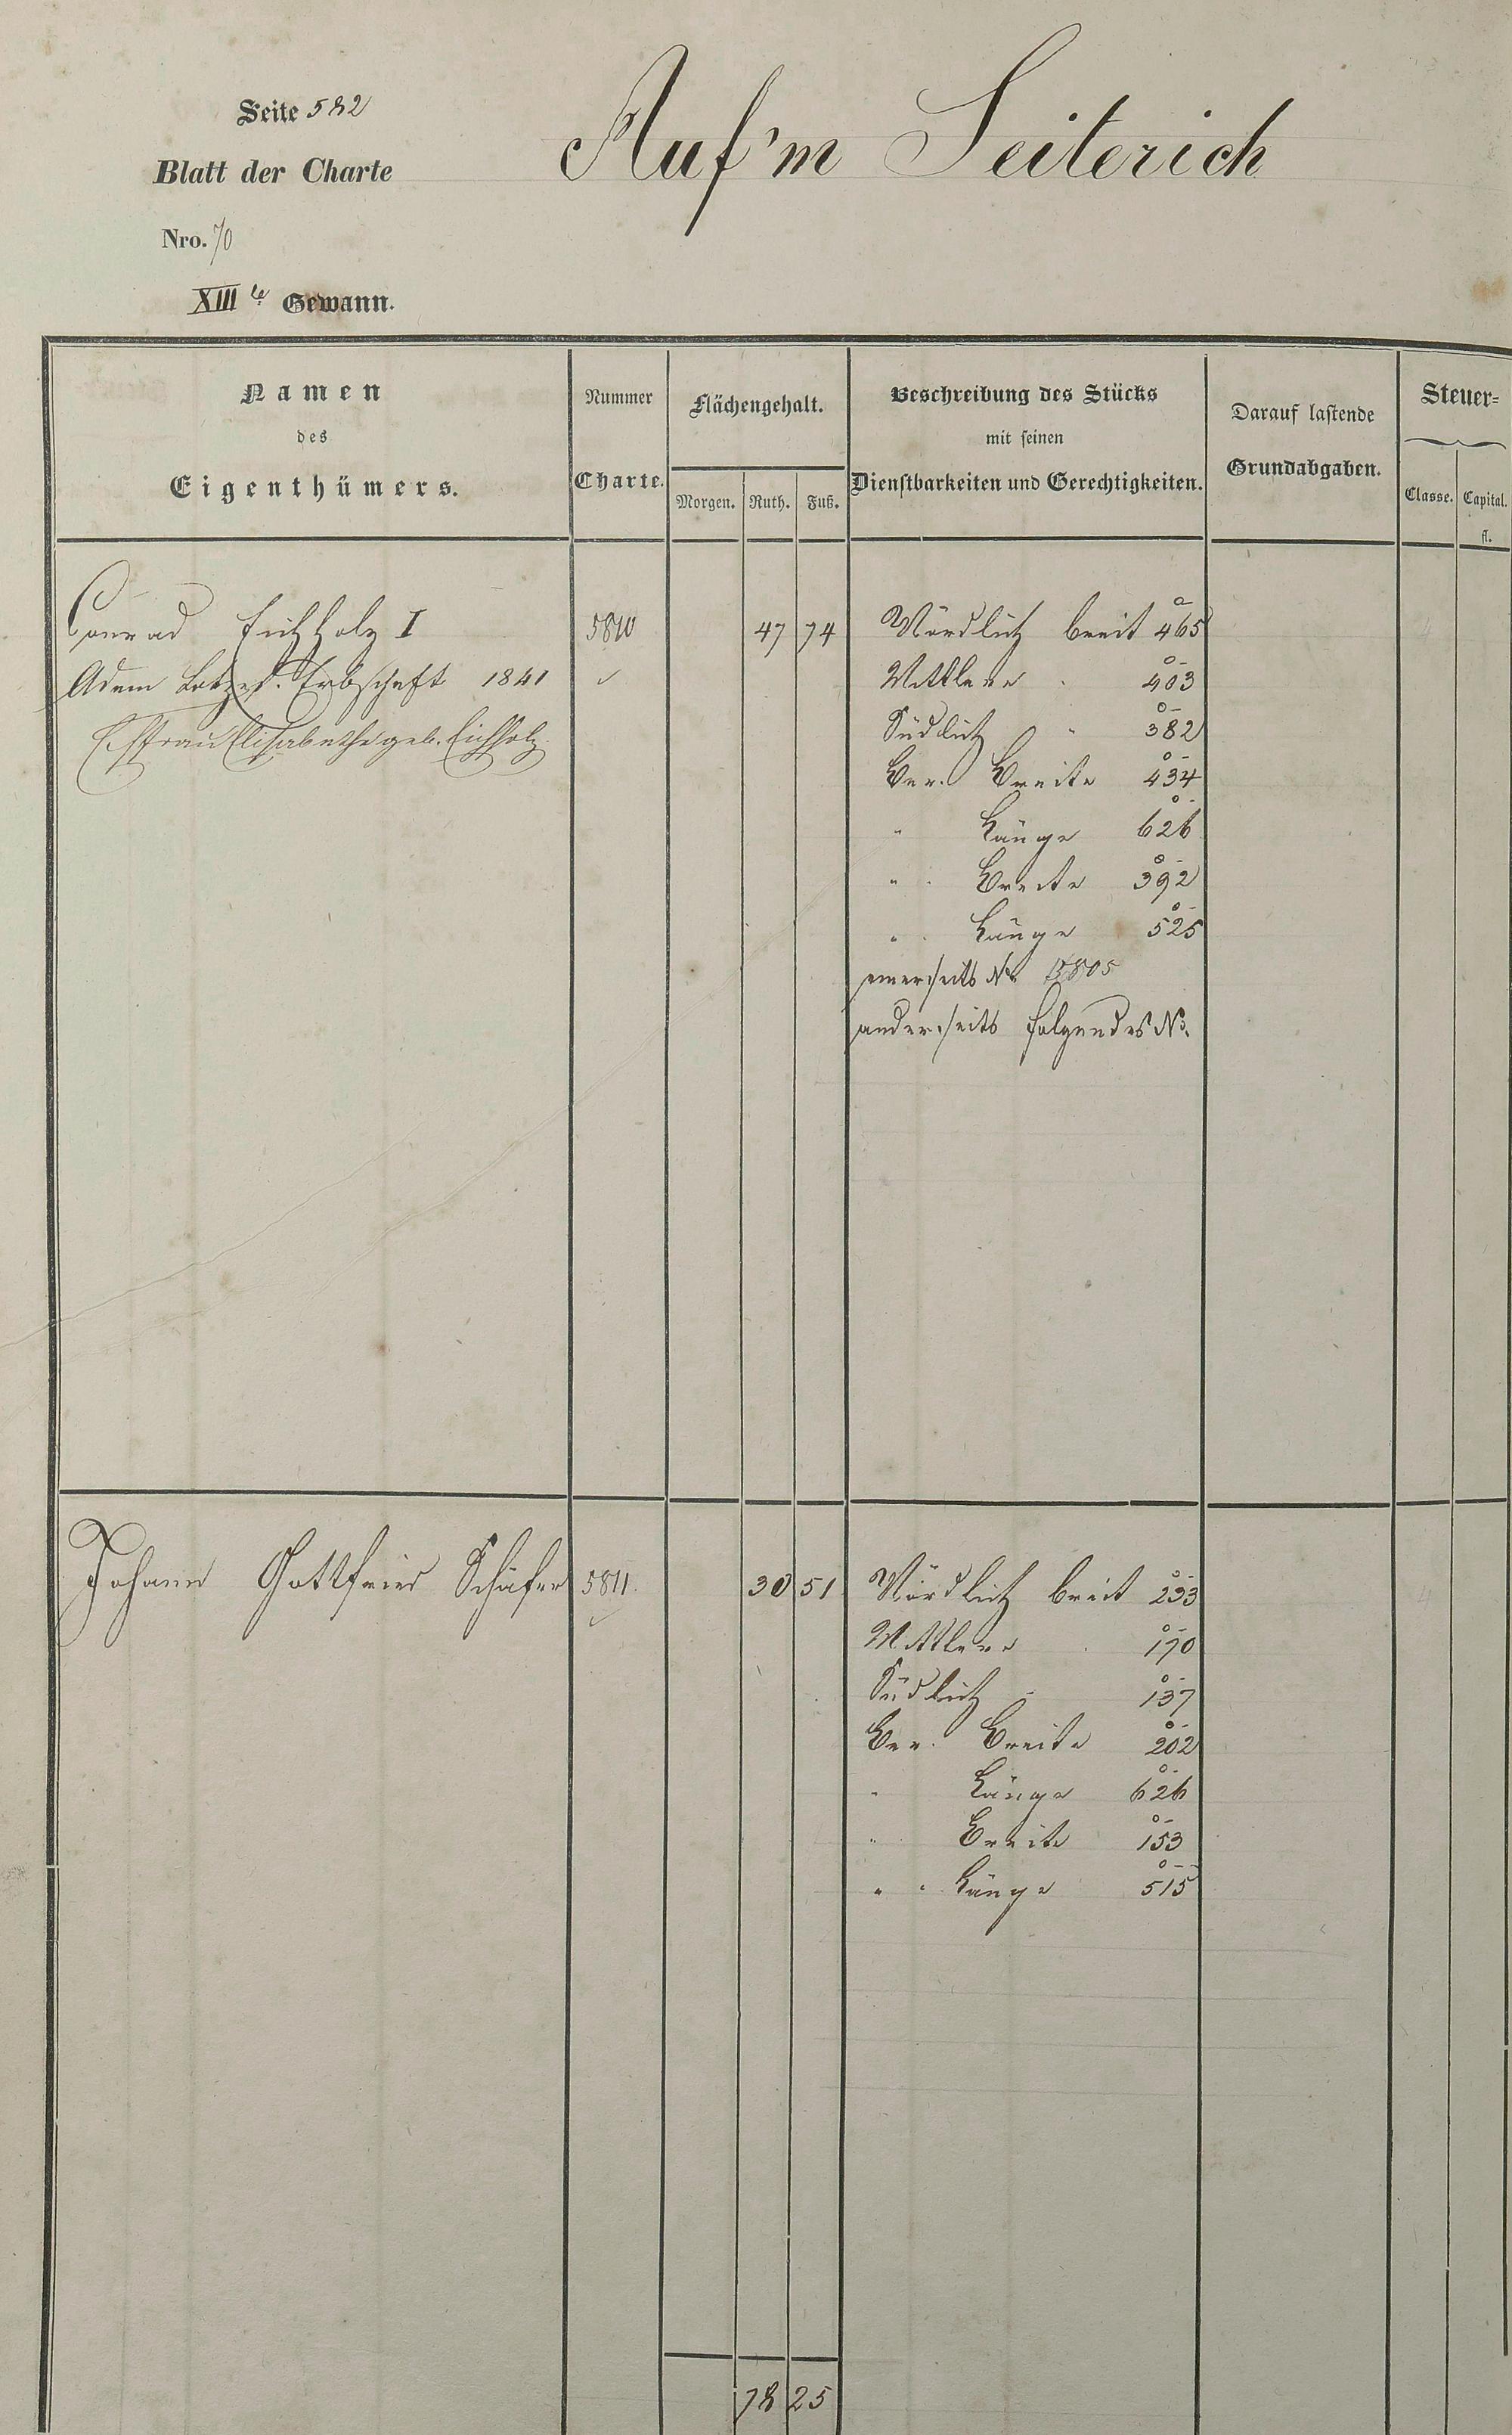 Seite 582
Auf'm Seiterich
Blatt der Charte
Nro. 70
XIII te Gewann.
Namen
des
Eigenthümers.
Nummer
Charte.
Flächengehalt.
Morgen. Ruth. Fuß.
Beschreibung des Stücks
mit seinen
Dienstbarkeiten und Gerechtigkeiten.
Darauf lastende
Grundabgaben.
Steuer=
Classe. Capital.
fl.
Conrad Eichholz I 5810 47 74 Nördlich breit 465
Adam Erbschaft 1841 Mittlere 403
Ehefrau Elisabethe geb. Eichholz Südlich " 382
Ber. Breite 434
" Länge 626
" Breite 392
" Länge 525
einerseits No 5805
anderseits folgendes No.
Johann Gottfried Schäfer 5811. 30 51 Nördlich breit 233
Mittlere 170
Südlich 137
Ber. Breite 202
" Länge 626
" Breite 153
" Länge 515
78 25